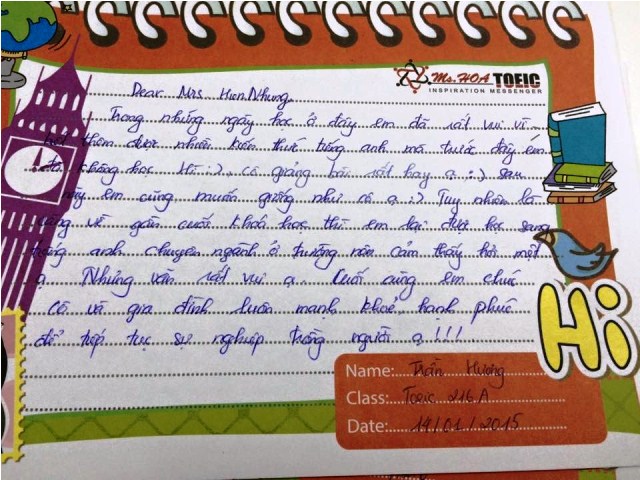 Ms.HOA TOEIC
INSPIRATION MESSENGER
Dear Mrs Hien Nhung,
Trong những ngày học ở đây em đã rất vui vì
thêm được nhiều kiến thức tiếng anh mà trước đây em
đã không học Hì :) cô giảng bài rất hay ạ :) sau
này em cũng muốn giống như cô ạ :) Tuy nhiên là
càng về gần cuối khoá học thì em lại được học sang
tiếng anh chuyên ngành ở trường nên cảm thấy hơi mệt
ạ Nhưng vẫn rất vui ạ.. Cuối cùng em chúc
cô và gia đình luôn mạnh khoẻ, hạnh phúc
để tiếp tục sự nghiệp trồng người ạ!!!
Hi
Name: Trần Hương
Class: Toeic 216A
Date: 14/01/2015